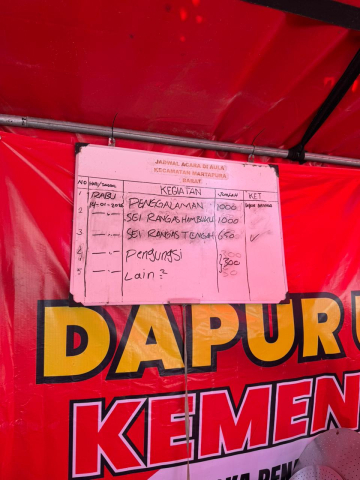 JADWAL ACARA DI AULA
KECAMATAN MARTAPURA
BARAT
NO HARI/TANGGAL KEGIATAN JUMLAH KET
1 RABU PENGGALAMAN 1000
14-01-2026
2 -"- SEI RANGAS HAMBUKU 1.000
3 -"- SEI RANGAS TENGAH 650 ✓
4 -"- Pengungsi 300
5 -"- Lain² 50
DAPUR U
KEMEN